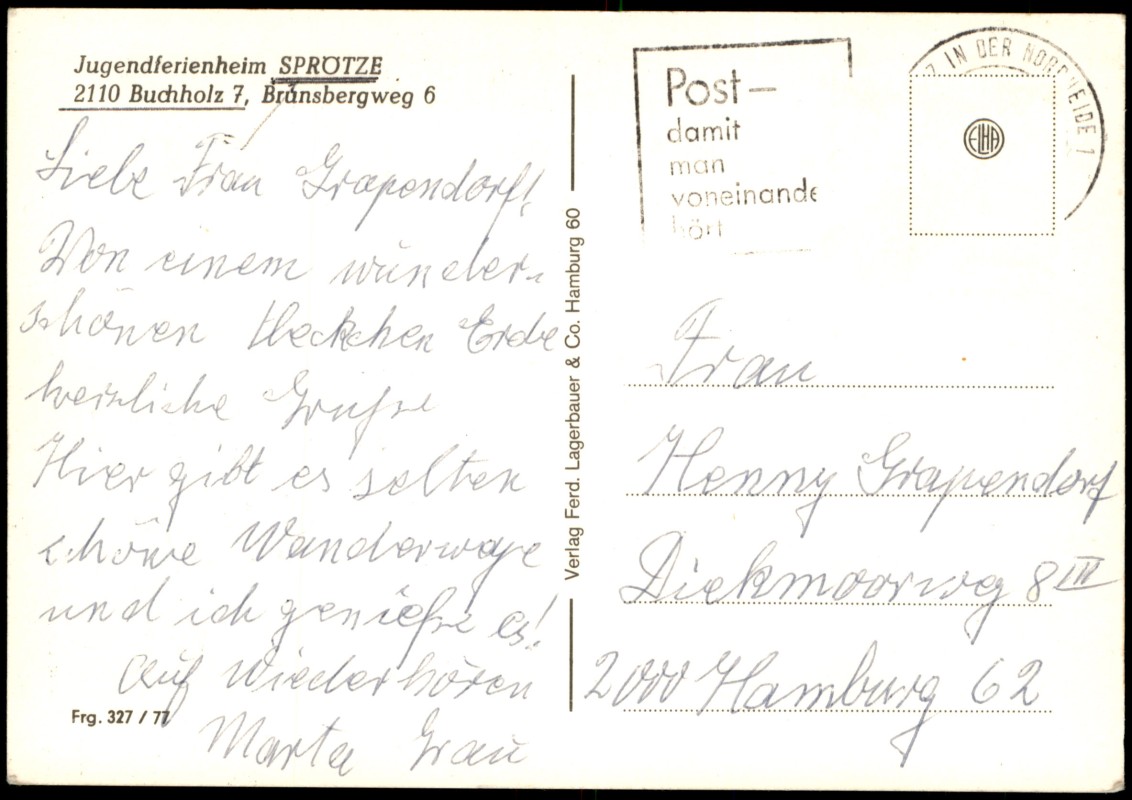 Jugendferienheim SPRÖTZE
2110 Buchholz 7, Brunsbergweg 6
Liebe Frau Grapendorf!
Von einem wunder-
schönen Fleckchen Erde
herzliche Grüße
Hier gibt es selten
schöne Wanderwege
und ich genieße es!
Auf Wiederhören
Marta Grau
Frg. 327 / 77
Verlag Ferd. Lagerbauer & Co. Hamburg 60
Post–
damit
man
voneinande
hört
Z IN DER NORDHEIDE 1
ELHA
Frau
Henny Grapendorf
Diekmoorweg 8 III
2000 Hamburg 62